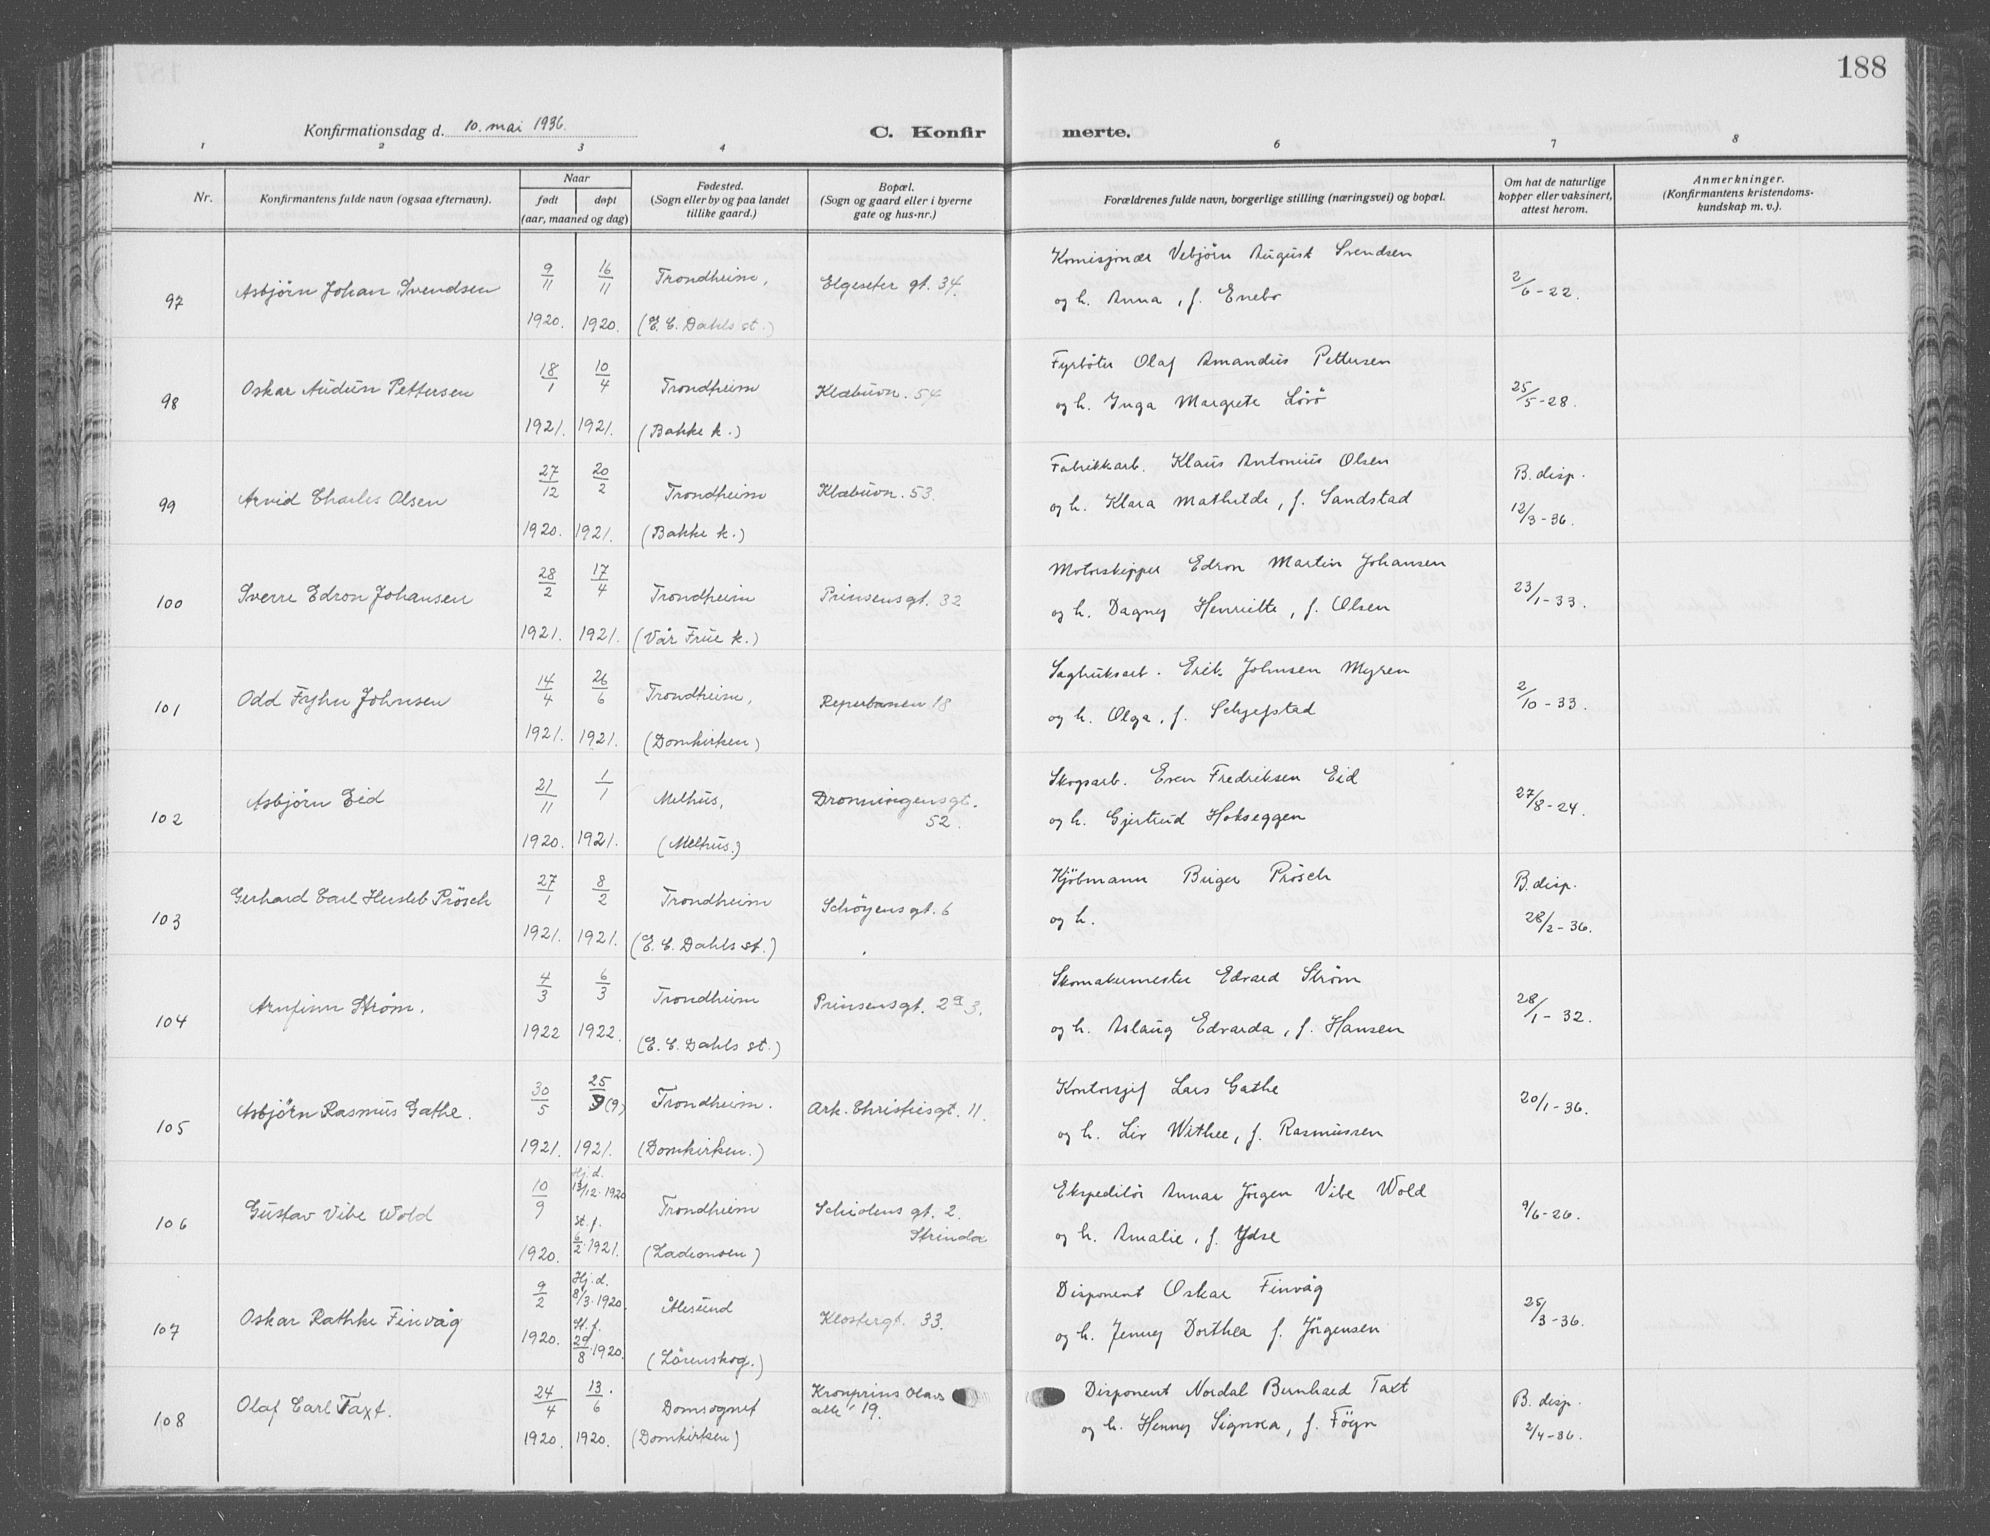 188
Konfirmationsdag d. 10. mai 1936.
C. Konfirmerte.
1 2 3 4 6 7 8
Nr.
Konfirmantens fulde navn (ogsaa efternavn).
Naar
født døpt
(aar, maaned og dag)
Fødested.
(Sogn eller by og paa landet
tillike gaard.)
Bopæl.
(Sogn og gaard eller i byerne
gate og hus-nr.)
Forældrenes fulde navn, borgerlige stilling (næringsvei) og bopæl.
Om hat de naturlige
kopper eller vaksinert,
attest herom.
Anmerkninger.
(Konfirmantens kristendoms-
kundskap m. v.).
97 Asbjørn Johan Svendsen 9/11 1920. 16/11 1920. Trondheim, (E. C. Dahls st.) Elgeseter gt. 34.
Komisjonær Vebjørn August Svendsen
og h. Anna, f. Enebo
2/6-22.
98 Oskar Audun Pettersen 18/1 1921. 10/4 1921. Trondheim (Bakke k.) Klæbuvn. 54
Fyrbøter Olaf Amandus Pettersen
og h. Inga Margrete Lörö
25/5-28.
99 Arvid Charles Olsen 27/12 1920. 20/2 1921. Trondheim (Bakke k.) Klæbuvn. 53.
Fabrikkarb. Klaus Antonius Olsen
og h. Klara Mathilde, f. Sandstad
B. disp.
12/3-36.
100 Sverre Edron Johansen 28/2 1921. 17/4 1921. Trondheim (Vår Frue k.) Prinsensgt. 32
Motorskipper Edron Martin Johansen
og h. Dagny Henriette, f. Olsen
23/1-33.
101 Odd Fryhn Johnsen 14/4 1921. 26/6 1921. Trondheim, (Domkirken) Reperbanen 18
Sagbruksarb. Erik Johnsen Myren
og h. Olga, f. Schjefstad
2/10-33.
102 Asbjørn Eid 21/11 1920. 1/1 1921. Melhus, (Melhus.) Dronningensgt.
52.
Skogsarb. Even Fredriksen Eid
og h. Gjertrud Hokseggen
27/8-24.
103 Gerhard Carl Hersleb Prösch 27/1 1921. 8/2 1921. Trondheim (E. C. Dahls st.) Schøyensgt. 6
Kjöbmann Birger Prösch
og h.
B. disp.
28/2-36.
104 Arnfinn Strøm. 4/3 1922 6/3 1922. Trondheim (E. C. Dahls st.) Prinsensgt. 2a 3.
Skomakermester Edvard Strøm
og h. Aslaug Edvarda, f. Hansen
28/1-32.
105 Asbjörn Rasmus Gathe. 30/5 1921. 25/9 (9) 1921. Trondheim. (Domkirken.) Ark. Christiesgt. 11.
Kontorsjef Lars Gathe
og h. Liv Withee, f. Rasmussen
20/1-36.
106 Gustav Vibe Wold 10/9 1920. Hj. d. 13/12.1920 st. f. 6/2.1921. Trondheim (Lademoen) Schiølens gt. 2.
Strinda
Ekspeditör Annar Jörgen Vibe Wold
og h. Amalie, f. Ydse
9/6-26.
107 Oskar Rathke Finvåg 9/2 1920. Hj. d. 8/3.1920. St. f. 29/8.1920. Ålesund (Lørenskog.) Klostergt. 33.
Disponent Oskar Finvåg
og h. Jenny Dorthea f. Jörgensen
25/3-36.
108 Olaf Carl Taxt. 24/4 1920. 13/6 1920. Domsognet (Domkirken) Kronprins Olavs
allé 19.
Disponent Nordal Bernhard Taxt
og h. Henny Signora, f. Föyn
B. disp.
2/4-36.